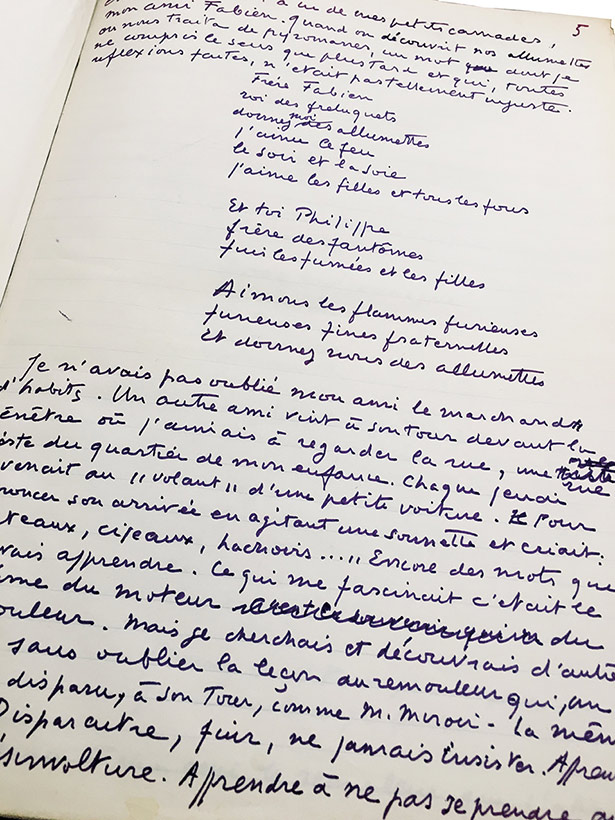 5
à un de mes petits camarades,
mon ami Fabien. quand on découvrit nos allumettes
on nous traita de pyromanes, un mot dont je
ne compris le sens que plus tard et qui, toutes
réflexions faites, n'était pas tellement injuste.
Frère Fabien
roi des freluquets
donnez moi des allumettes
j'aime le feu
le soir et la soie
j'aime les filles et tous les fous
Et toi Philippe
frère des fantômes
fuis les fumées et les filles
Aimons les flammes furieuses
furieuses fines fraternelles
Et donnez nous des allumettes
Je n'avais pas oublié mon ami le marchand
d'habits. Un autre ami vint à son tour devant la
fenêtre où j'aimais à regarder la rue, une rue
du quartier de mon enfance. Chaque jeudi
venait au "volant" d'une petite voiture. Pour
son arrivée en agitant une sonnette et criait:
teaux, ciseaux, hachoirs...," Encore des mots que
apprendre. Ce qui me fascinait c'était le
du moteur du
Mais je cherchais et découvrais d'autre
sans oublier la leçon du remouleur qui, un
disparu, à son tour, comme M. Miroir - la mêm
Disparaître, fuir, ne jamais insister. Appren
sinvolture. Apprendre à ne pas se prendre